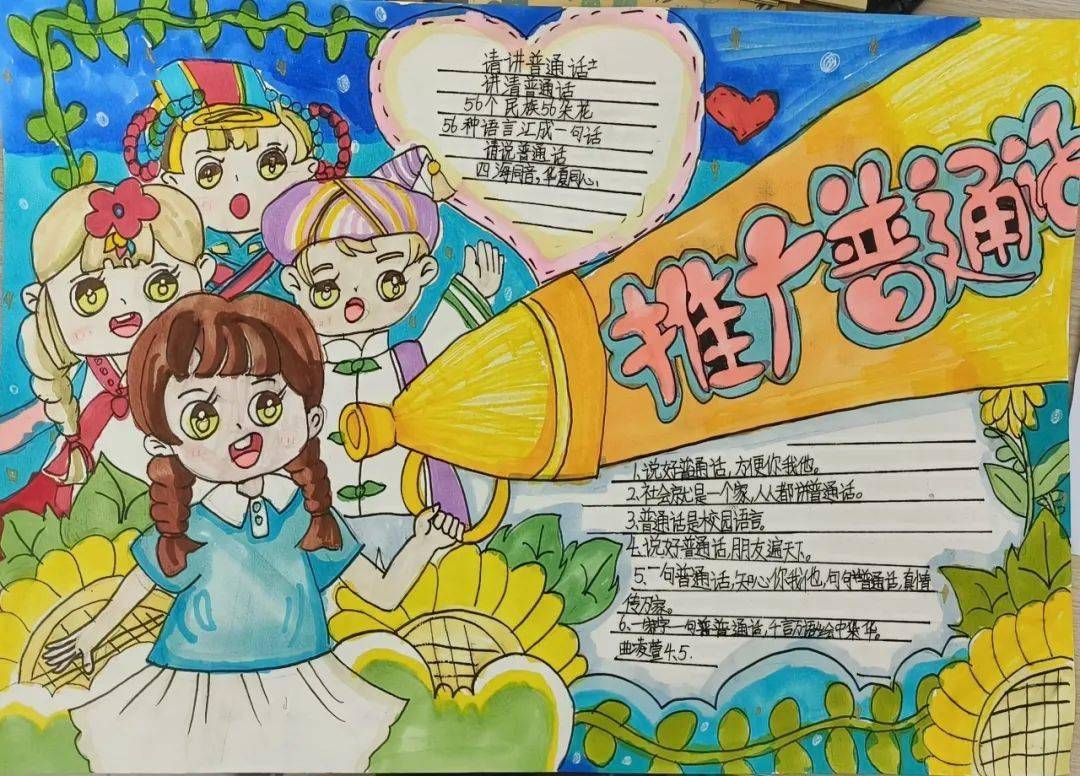 请讲普通话
讲清普通话
56个民族56朵花
56种语言汇成一句话
请说普通话
四海同音,华夏同心、
推广普通话
1.说好普通话,方便你我他。
2.社会就是一个家,人人都讲普通话。
3.普通话是校园语言。
4.说好普通话,朋友遍天下。
5.一句普通话,知心你我他,句句普通话,真情
传万家。
6.一字一句普普通话,千言万语中华。
曲凌萱4.5.